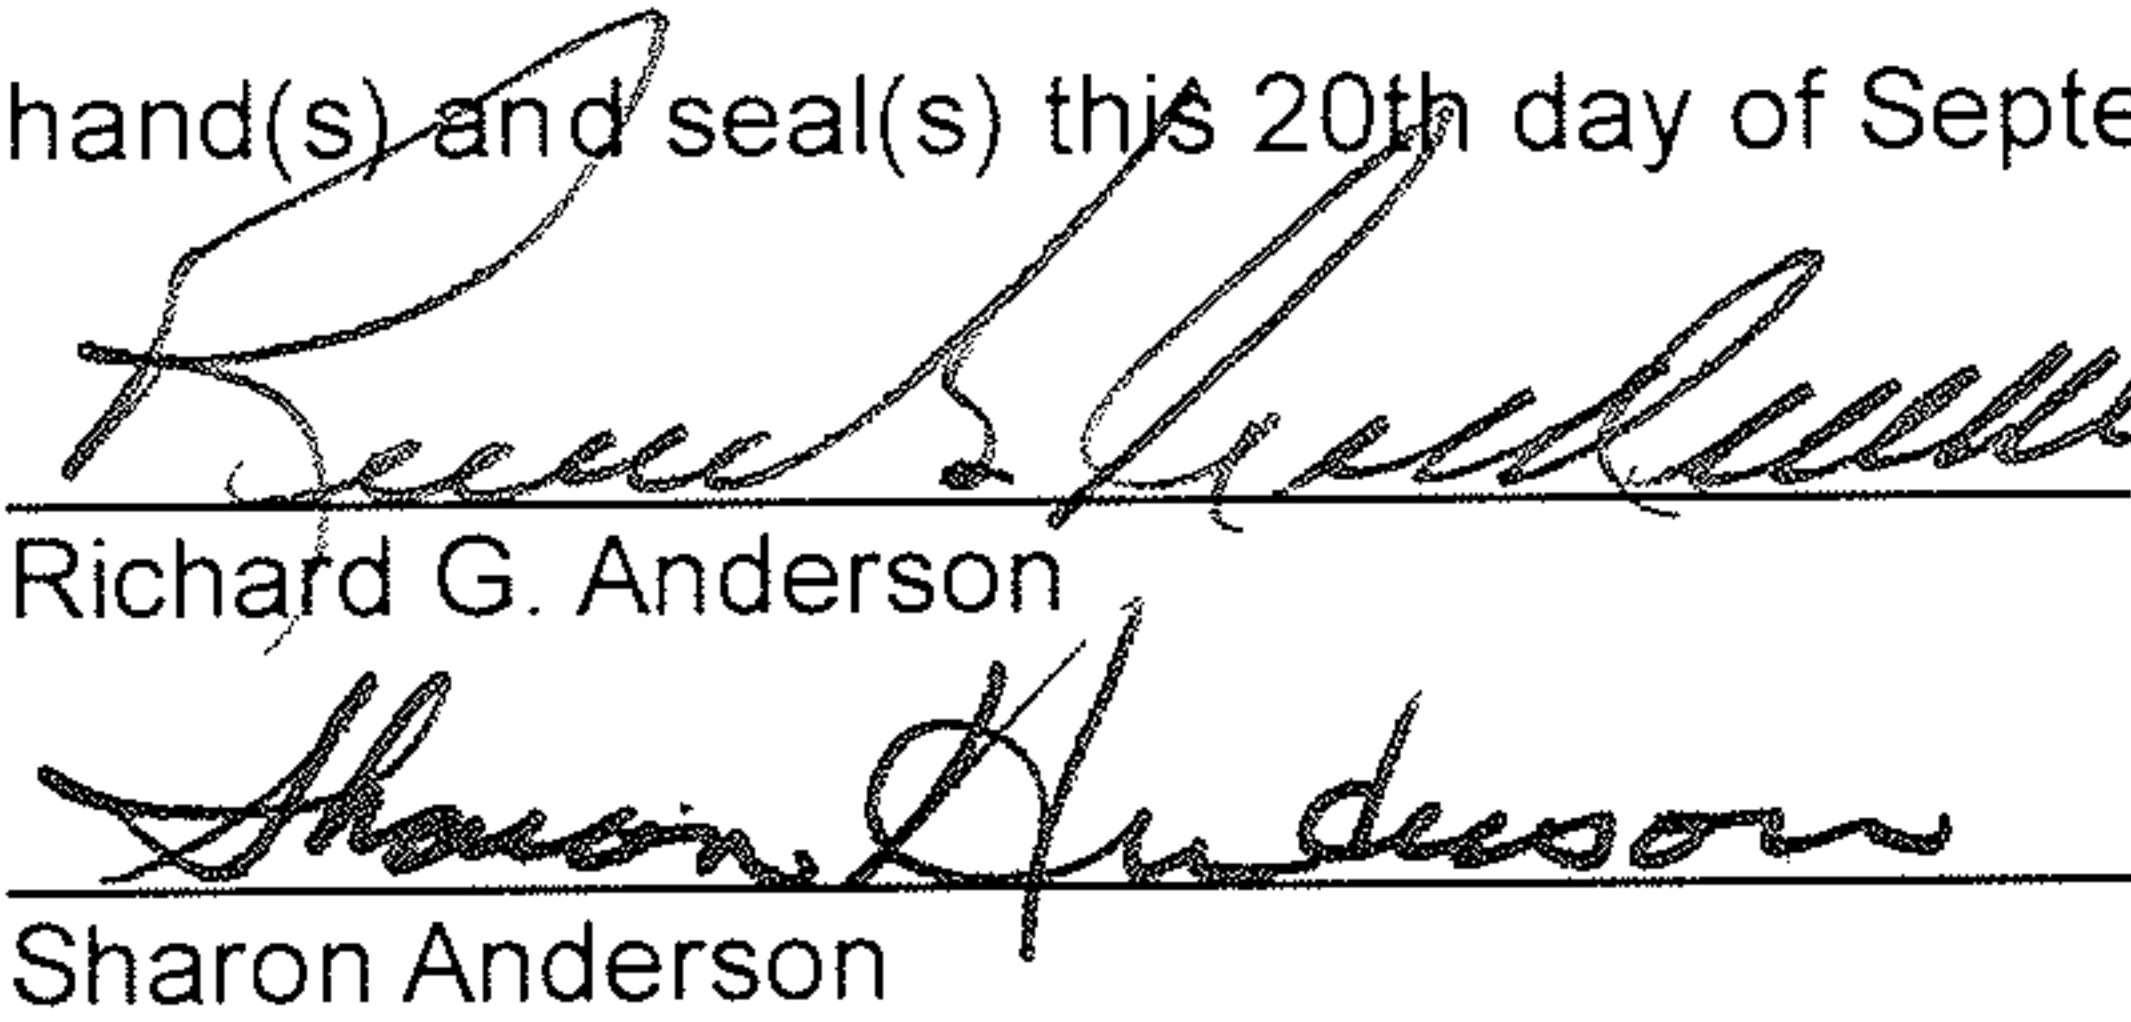 hand(s) and seal(s) this 20th day of Septe
Richard G. Anderson
Sharon Anderson
Sharon Anderson